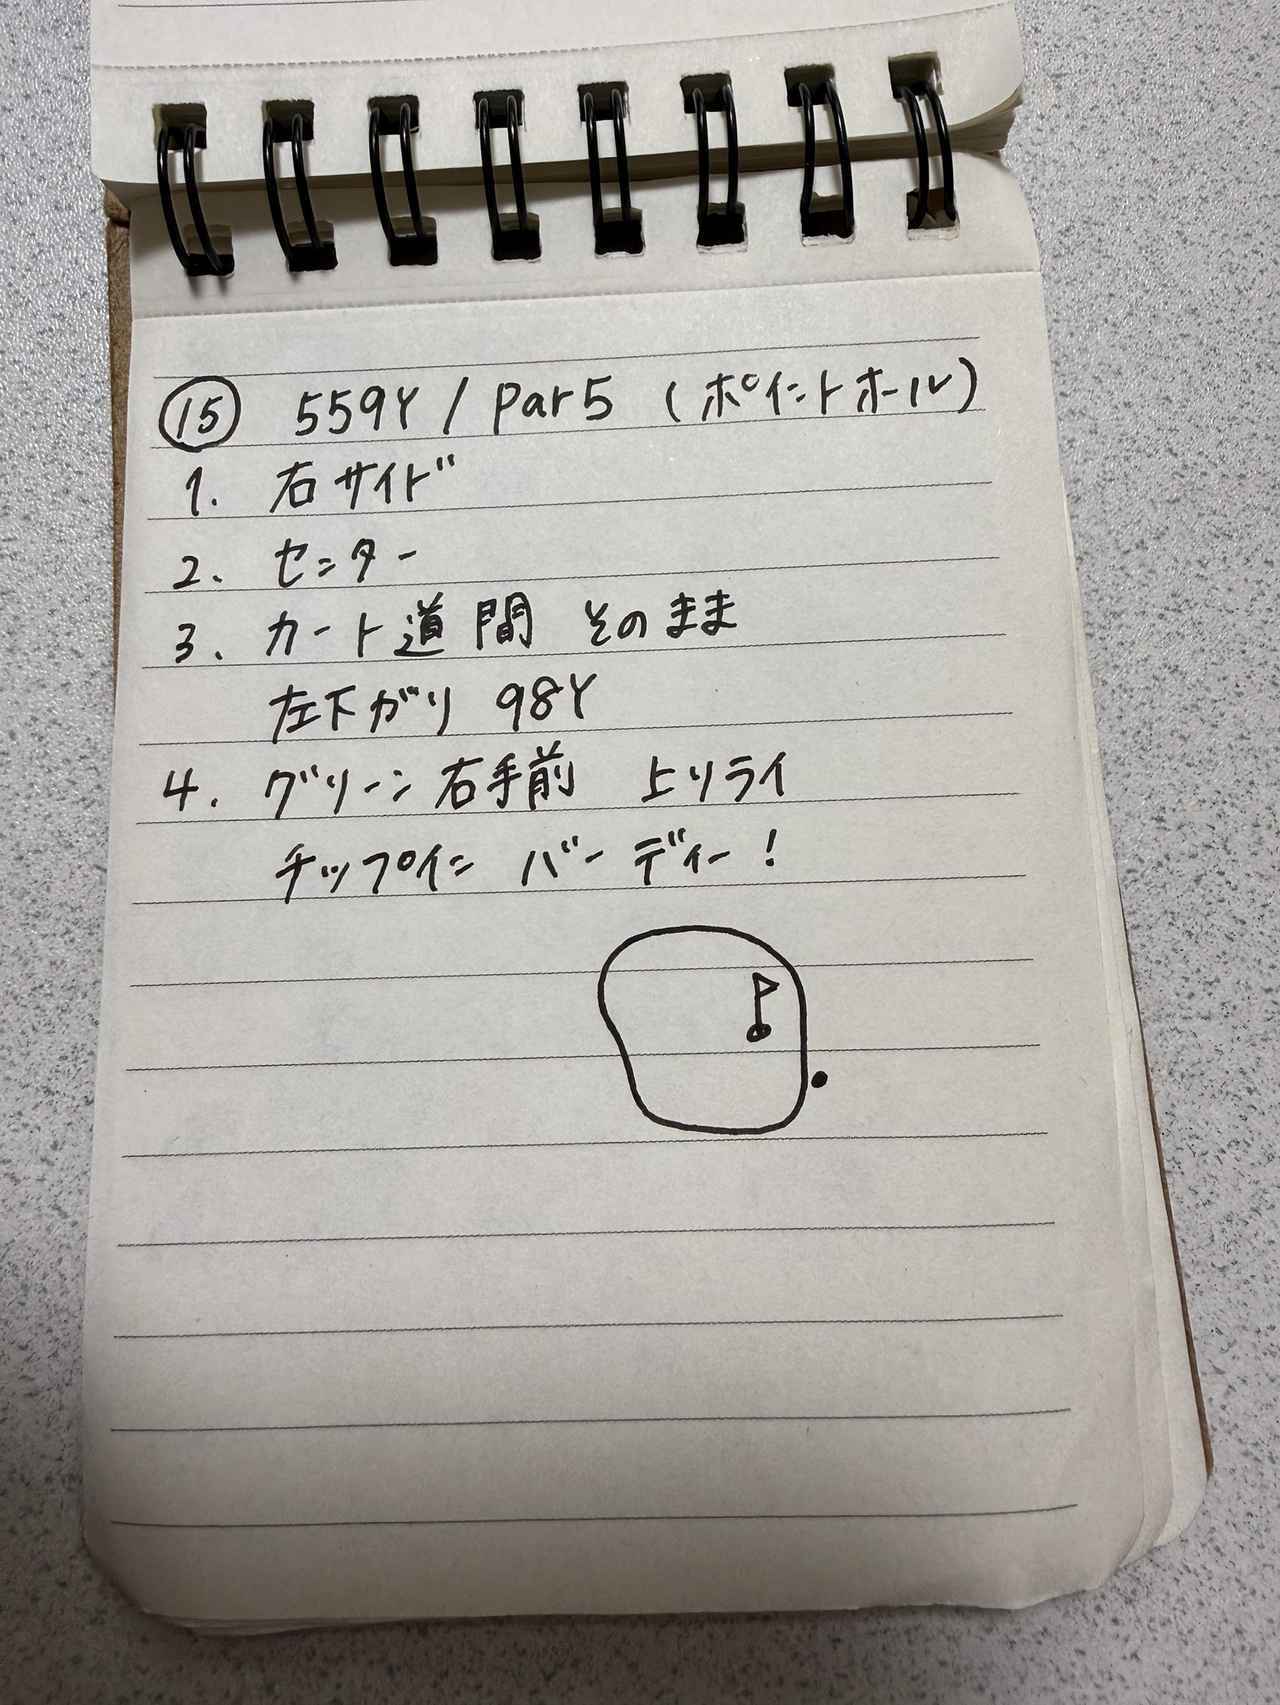 ⑮ 559Y / Par5 (ポイントホール)
1. 右サイド
2. センター
3. カート道間 そのまま
左下がり 98Y
4. グリーン右手前 上りライ
チップイン バーディー!